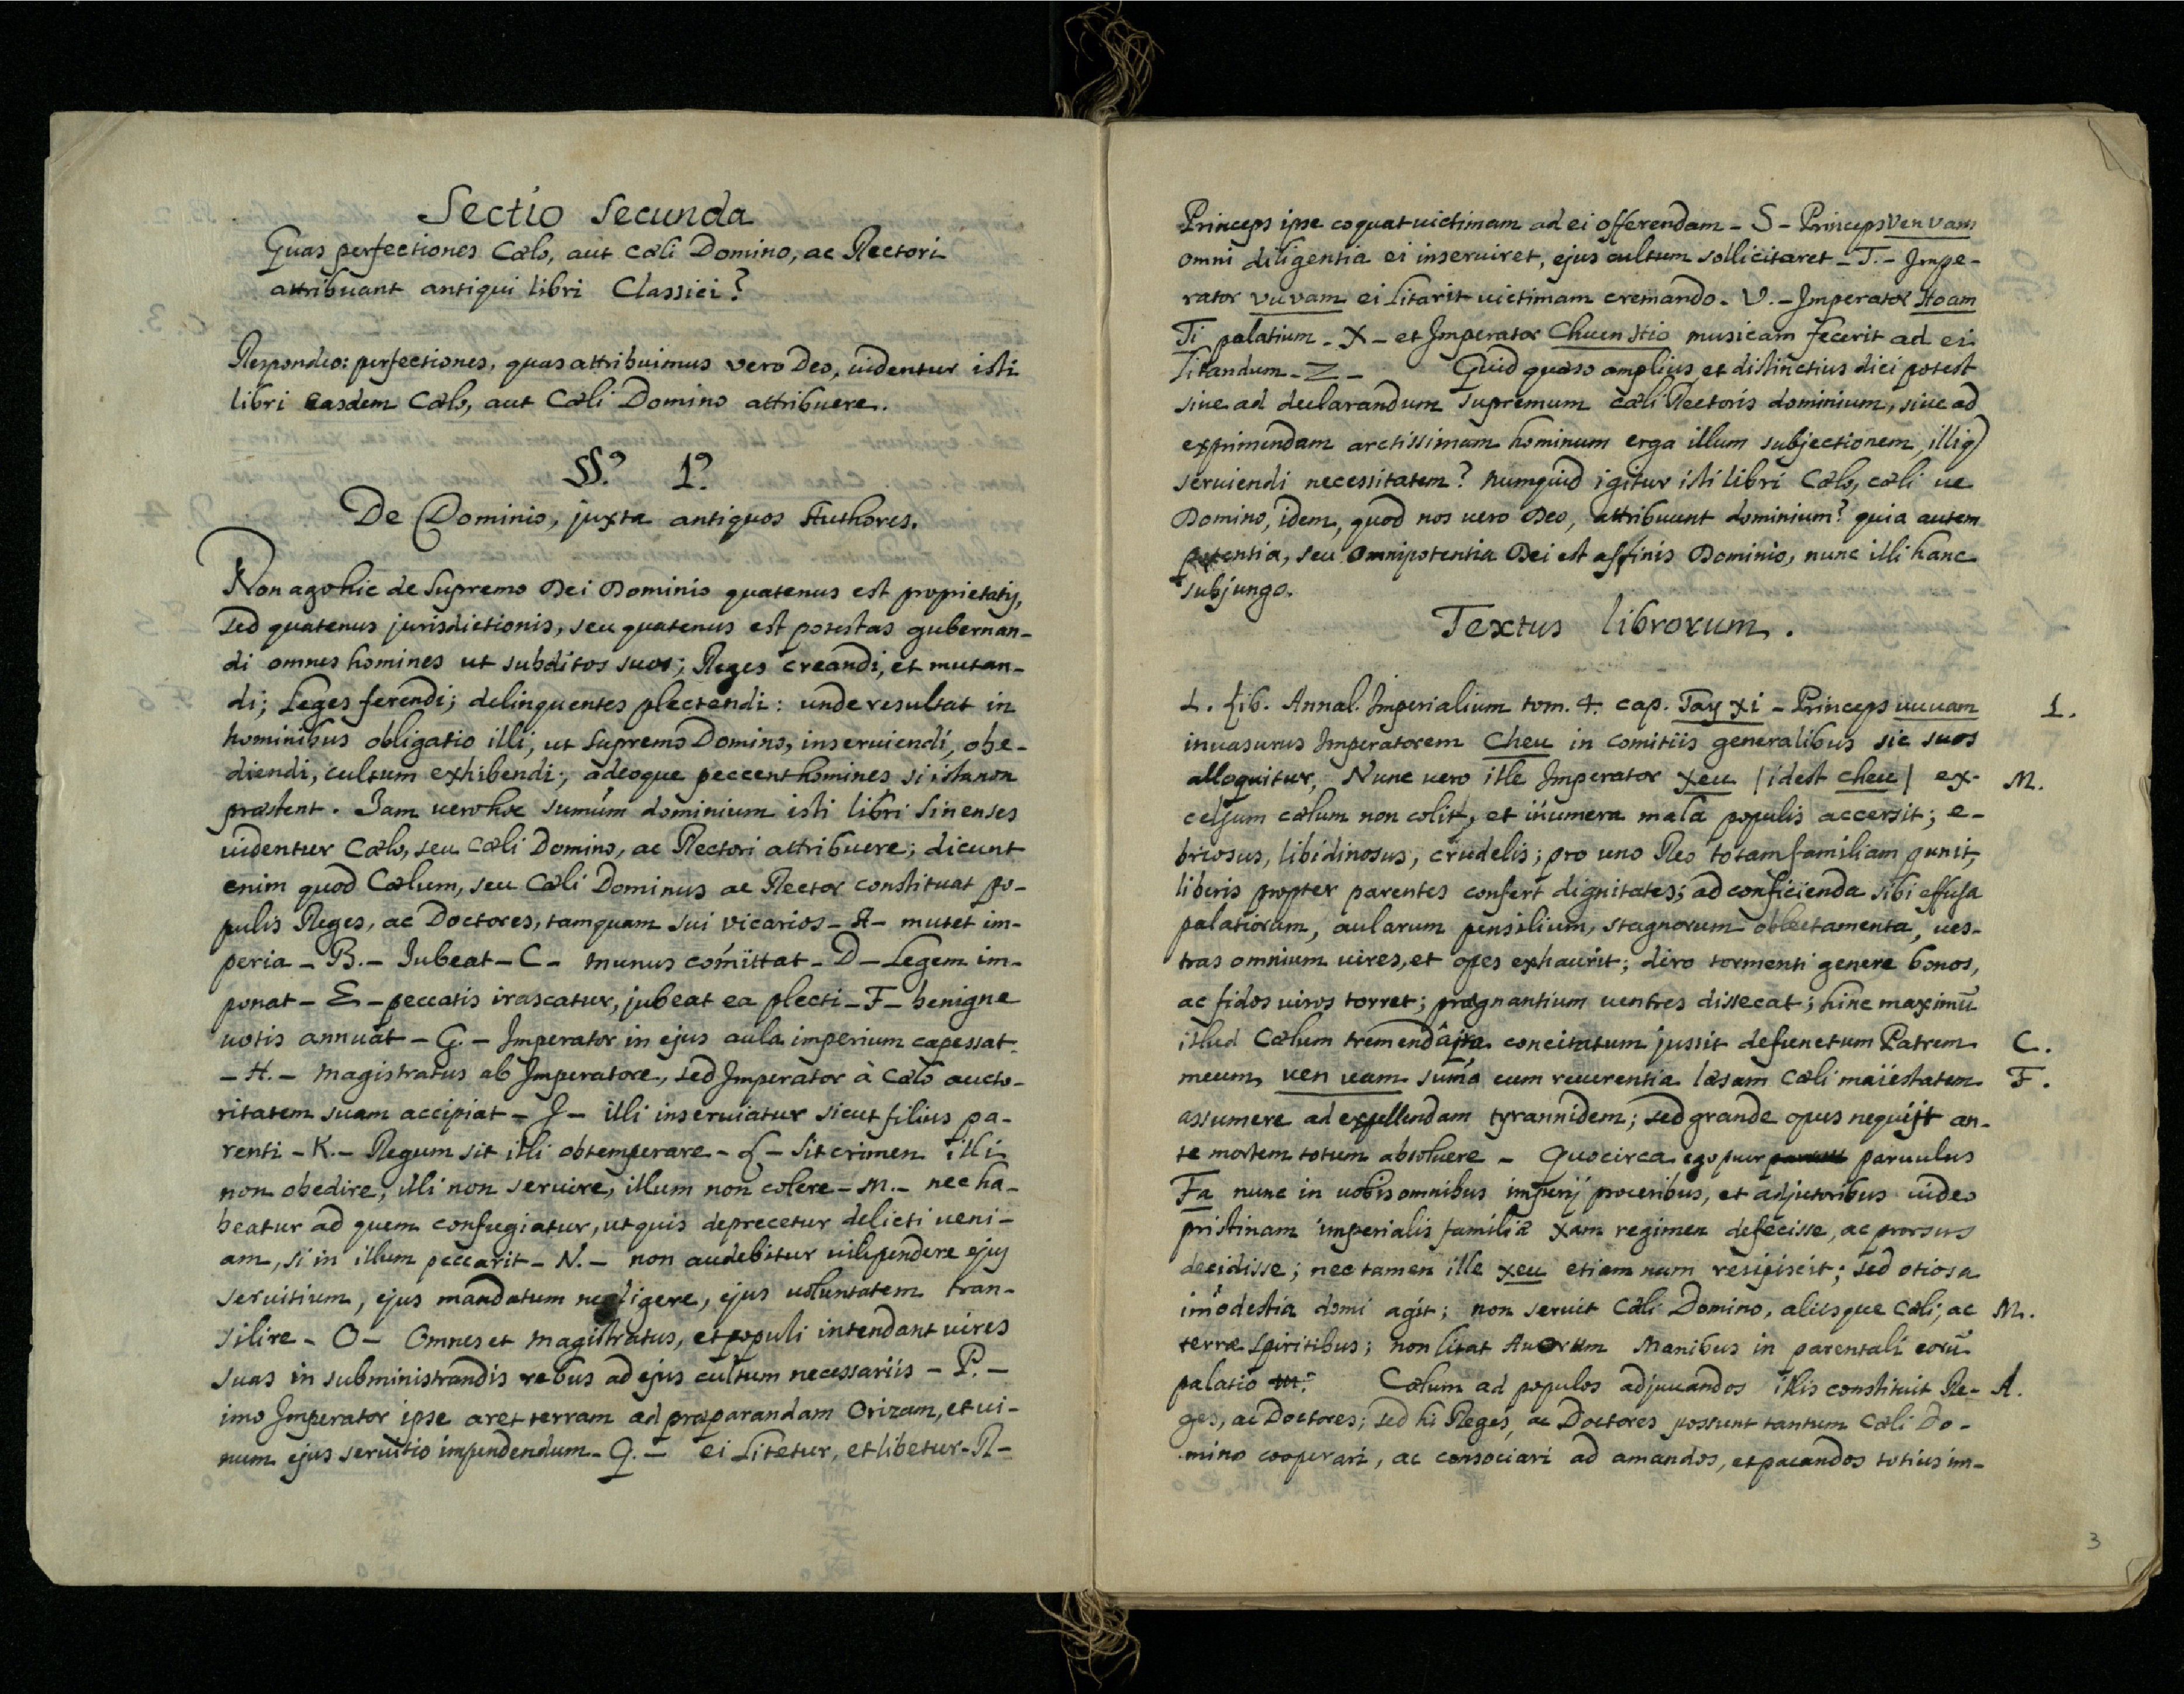 Sectio Secunda
Quas perfectiones Cælo, aut cæli Domino, ac Rectori
attribuant antiqui libri Classici?
Respondeo: perfectiones, quas attribuimus vero Deo, uidentur isti
libri easdem Cælo, aut Cæli Domino attribuere.
§§.º 1.º
De Dominio, juxta antiquos Authores.
Non ago hic de Supremo Dei Dominio quatenus est proprietatis,
sed quatenus jurisdictionis, seu quatenus est potestas gubernan-
di omnes homines ut subditos suos; Reges creandi, et mutan-
di; Leges ferendi; delinquentes plectendi: unde resultat in
hominibus obligatio illi, ut Supremo Domino, inseruiendi, obe-
diendi, cultum exhibendi; adeoque peccent homines si ista non
præstent. Jam uero hoc sumum dominium isti libri Sinenses
uidentur Cælo, seu Cæli Domino, ac Rectori attribuere; dicunt
enim quod Cælum, seu Cæli Dominus ac Rector constituat po-
pulis Reges, ac Doctores, tamquam sui vicarios - A - mutet im-
peria - B. - Jubeat - C - munus comittat - D - Legem im-
ponat - E - peccatis irascatur, jubeat ea plecti - F - benigne
uotis annuat - G. - Imperator in ejus aula imperium capessat
- H. - magistratus ab Imperatore, sed Imperator à Cælo aucto-
ritatem suam accipiat - J - illi inseruiatur sicut filius pa-
renti - K. - Regum sit illi obtemperare - L - Sit crimen illi
non obedire, illi non seruire, illum non colere - M. - nec ha-
beatur ad quem confugiatur, ut quis deprecetur delicti ueni-
am, si in illum peccarit - N. - non audebitur uilipendere ejus
seruitium, ejus mandatum negligere, ejus uoluntatem tran-
silire - O - Omnes et magistratus, et populi intendant uires
suas in subministrandis rebus ad ejus cultum necessariis - P. -
imo Imperator ipse aret terram ad præparandam Orizam, et ui-
num ejus seruitio impendendum - Q. - ei Litetur, et libetur - R -
Princeps ipse coquat uictimam ad ei offerendam - S - Princeps Ven vam
omni diligentia ei inseruiret, ejus cultum sollicitaret - T. - Impe-
rator vu vam ei litarit uictimam cremando - V. - Imperator Hoam
Ti palatium - X - et Imperator Chuen Hio musicam fecerit ad ei
litandum - Z - Quid quæso amplius, et distinctius dici potest
siue ad declarandum supremum cæli Rectoris dominium, siue ad
exprimendam arctissimam hominum erga illum subjectionem, illiq
seruiendi necessitatem? numquid igitur isti libri Cælo, cæli ue
Domino, idem, quod nos uero Deo, attribuunt dominium? quia autem
potentia, seu omnipotentia Dei est affinis Dominio, nunc illi hanc
subjungo.
Textus librorum.
L. Lib. Annal. Imperialium tom. 4. cap. Tay xi - Princeps uu uam 1.
inuasurus Imperatorem Cheu in comitiis generalibus sic suos
alloquitur, Nunc uero iste Imperator xeu | idest cheu | ex- M.
celsum cælum non colit, et iñumera mala populis accersit; e-
briosus, libidinosus, crudelis; pro uno Reo totam familiam punit,
liberis propter parentes confert dignitates; ad conficienda sibi effusa
palatiorum, aularum pensilium, stagnorum oblectamenta, ues-
tras omnium uires, et opes exhaurit; diro tormenti genere bonos,
ac fidos uiros torret; prægnantium uentres dissecat; hinc maximũ
illud Cælum tremendâ concitatum jussit defunctum Patrem C.
meum, uen uam suma cum reuerentia læsam cæli maiestatem F.
assumere ad expellendam tyrannidem; sed grande opus nequijt an-
te mortem totum absoluere - Quocirca ego puer paruulus
Fa nunc in uobis omnibus imperij proceribus, et adjutoribus uideo
pristinam imperialis familiæ Xam regimen defecisse, ac prorsus
decidisse; nec tamen ille xeu etiam num resipiscit; sed otiosa
imodestia domi agit; non seruit Cæli Domino, aliisque cæli, ac M.
terræ spiritibus; non litat Auorum Manibus in parentali eorũ
palatio Cælum ad populos adjuuandos illis constituit Re- A.
ges, ac Doctores; sed hi Reges, ac Doctores possunt tantum cæli Do-
mino cooperari, ac consociari ad amandos, et pacandos totius im-
3